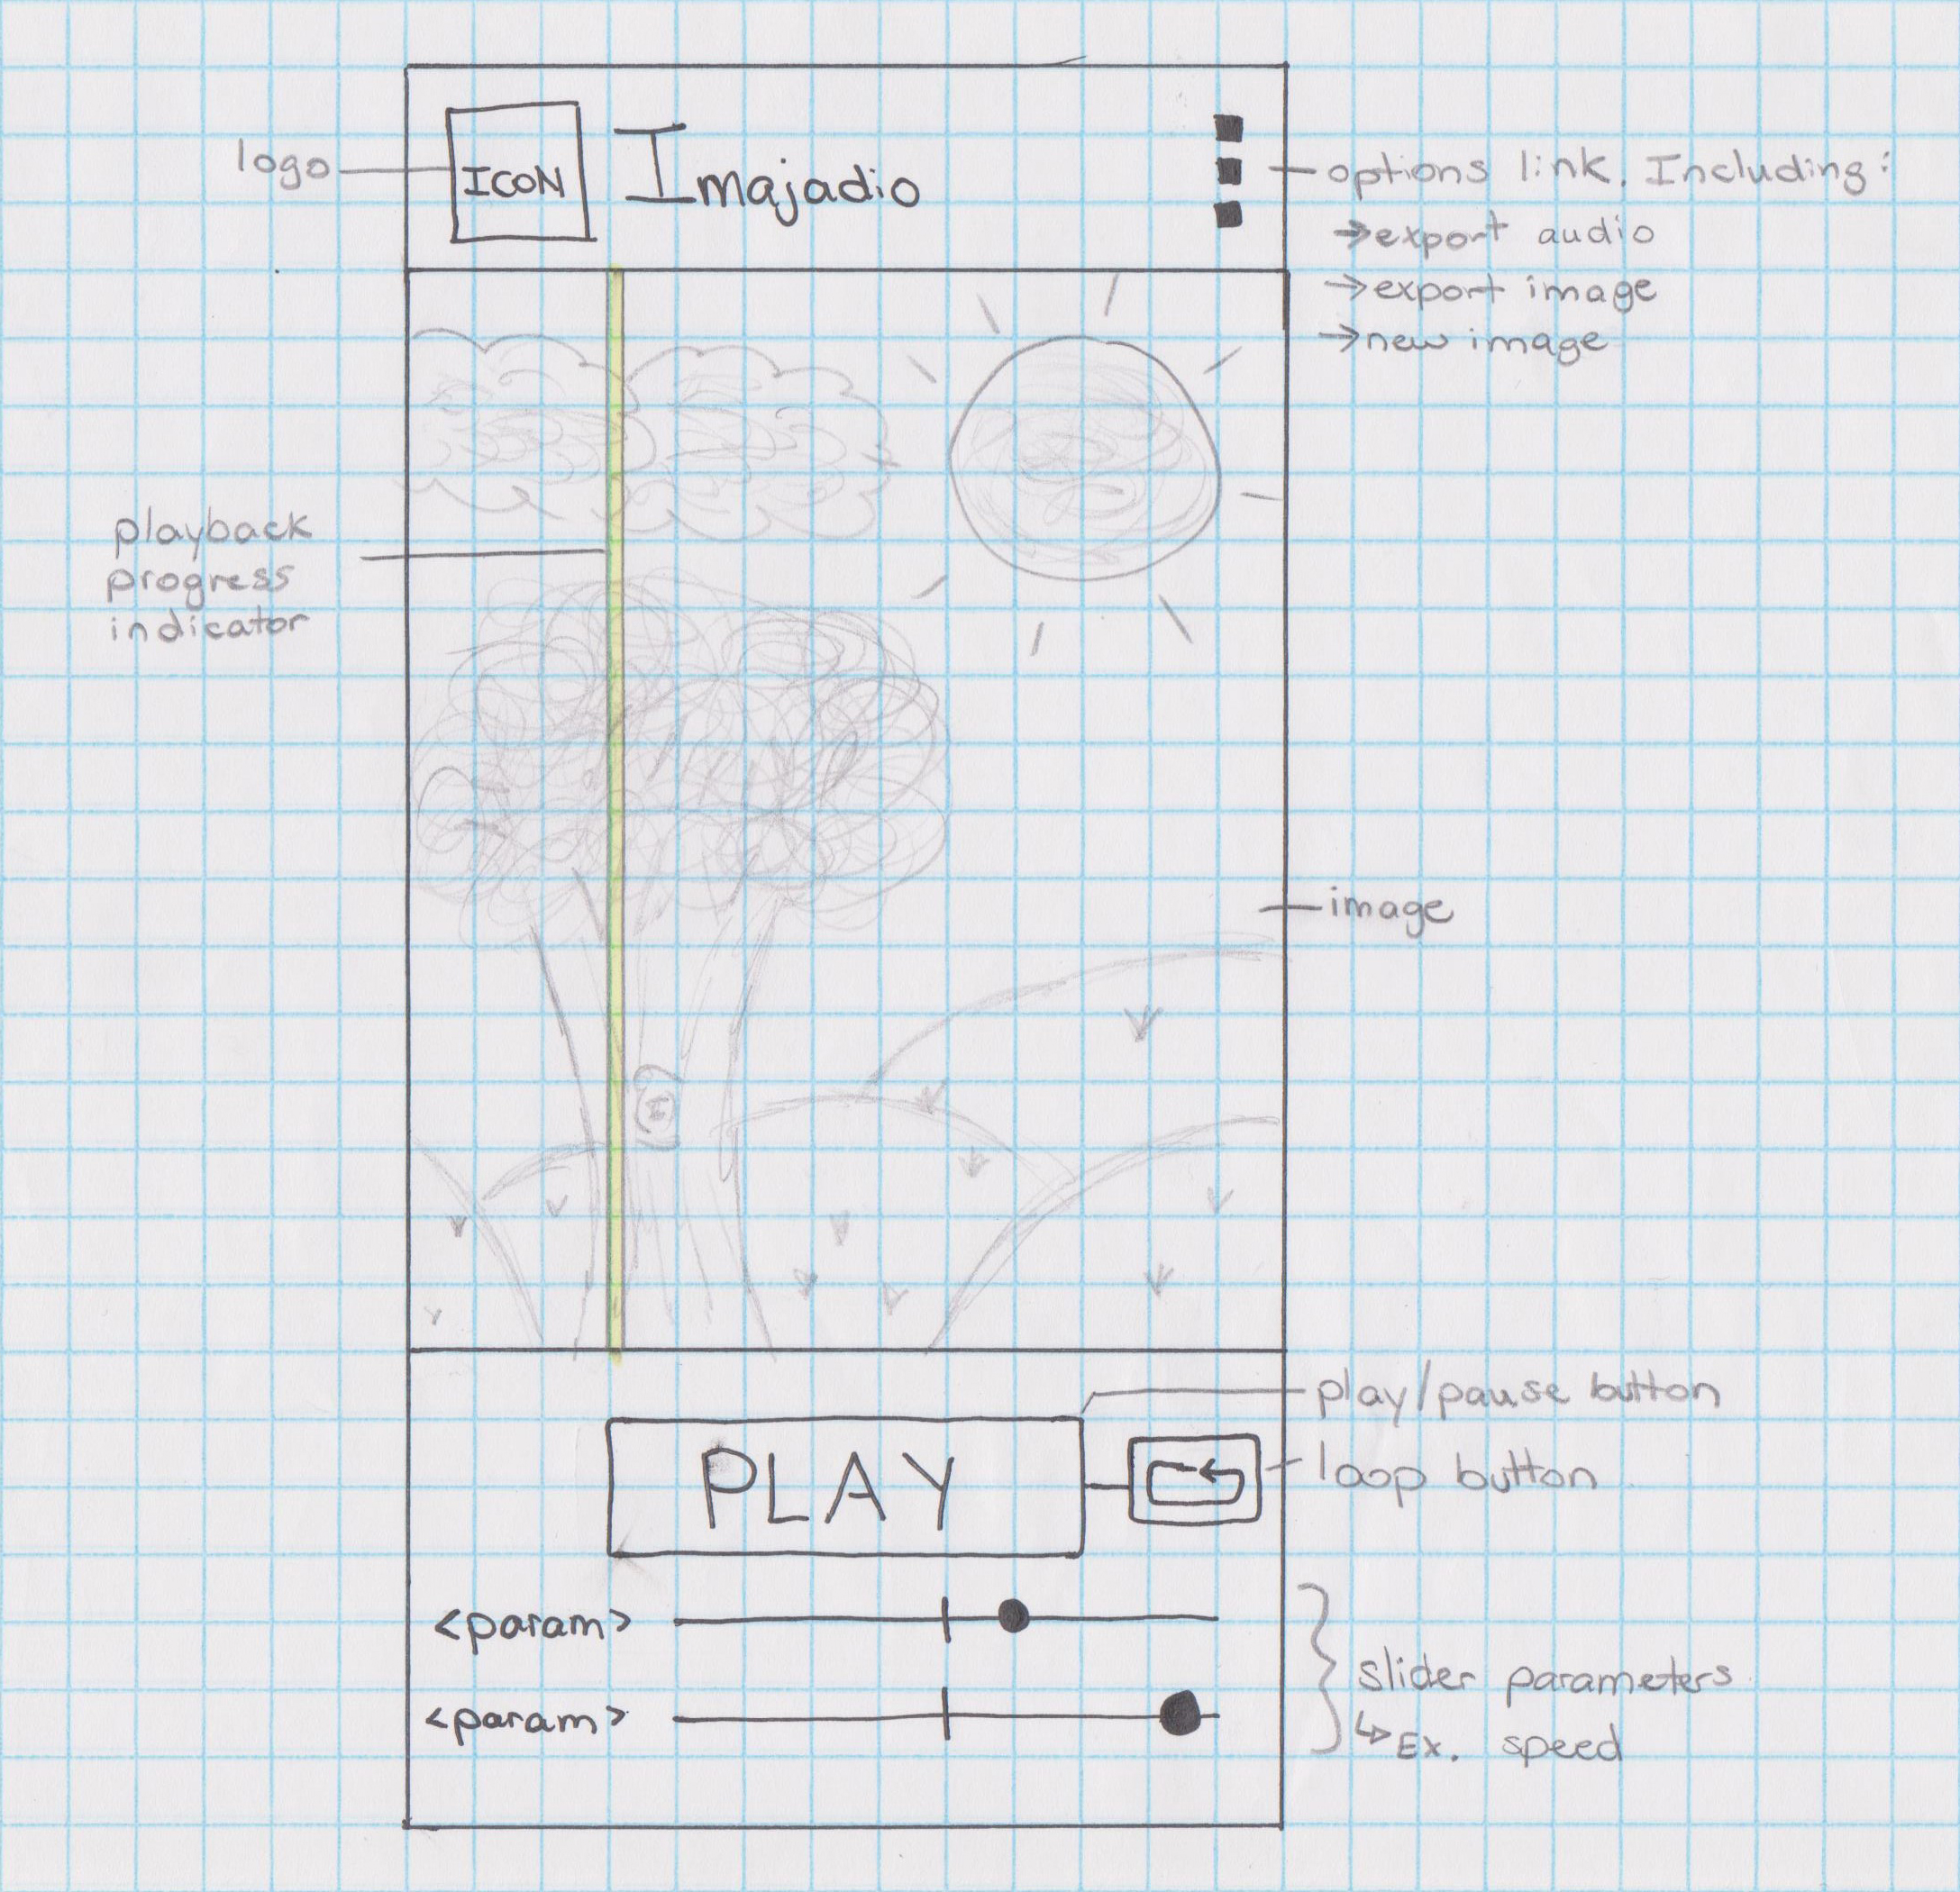 logo
ICON
Imajadio
options link. Including:
→export audio
→export image
→new image
playback
progress
indicator
image
play/pause button
PLAY
loop button
<param>
<param>
slider parameters
↳Ex. speed